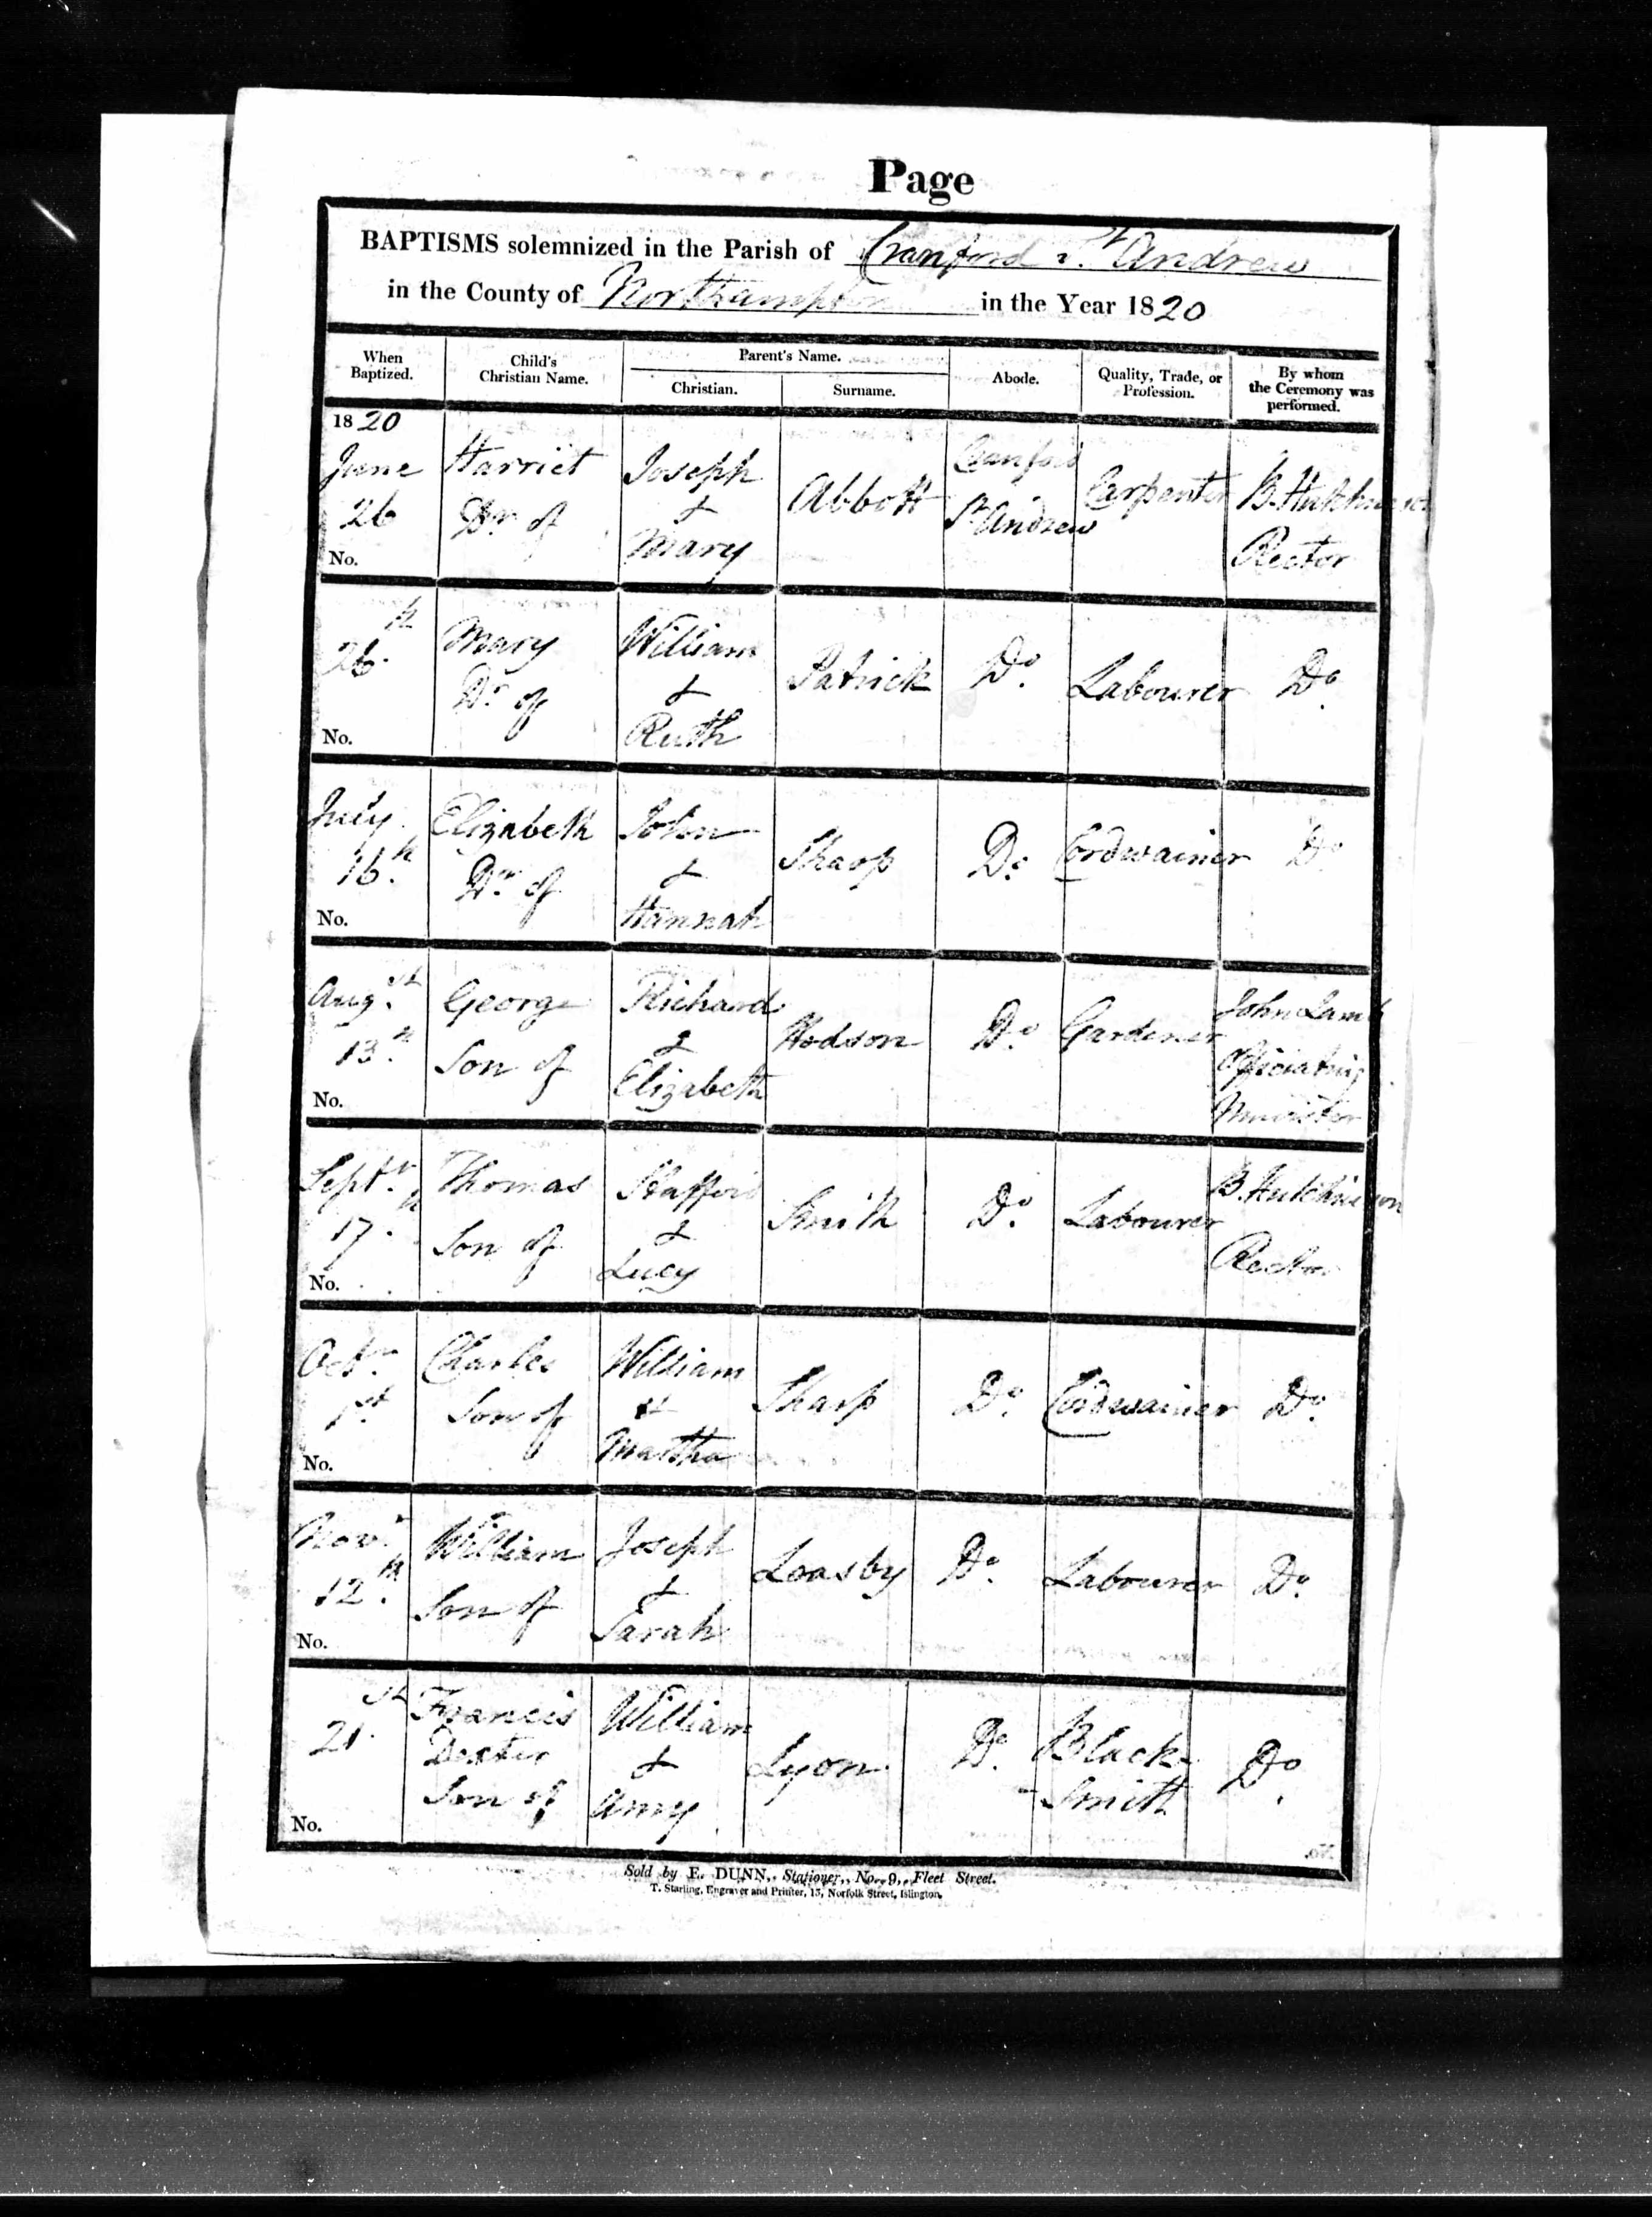 Page
BAPTISMS solemnized in the Parish of Cranford St. Andrew
in the County of Northampton in the Year 1820
When Baptized.
Child's Christian Name.
Parent's Name.
Christian.
Surname.
Abode.
Quality, Trade, or Profession.
By whom the Ceremony was performed.
1820
June
26
No.
Harriet
Dr. of
Joseph
&
Mary
Abbott
Cranford
St Andrew
Carpenter
B. Hutchinson
Rector
26th
No.
Mary
Dr. of
William
&
Ruth
Patrick
Do.
Labourer
Do.
July
16th
No.
Elizabeth
Dr. of
John
&
Hannah
Sharp
Do.
Cordwainer
Do.
Augst.
13th
No.
George
Son of
Richard
&
Elizabeth
Hodson
Do.
Gardener
John Lamb
Officiating
Minister
Septr.
17th
No.
Thomas
Son of
Stafford
&
Lucy
Smith
Do.
Labourer
B. Hutchinson
Rector
Octr.
1st.
No.
Charles
Son of
William
&
Martha
Sharp
Do.
Cordwainer
Do.
Novr.
12th.
No.
William
Son of
Joseph
&
Sarah
Loasby
Do.
Labourer
Do.
21st.
No.
Francis
Dexter
Son of
William
&
Amy
Lyon
Do.
Black-
-Smith
Do.
Sold by E. DUNN, Stationer, No. 9, Fleet Street.
T. Starling, Engraver and Printer, 15, Norfolk Street, Islington.